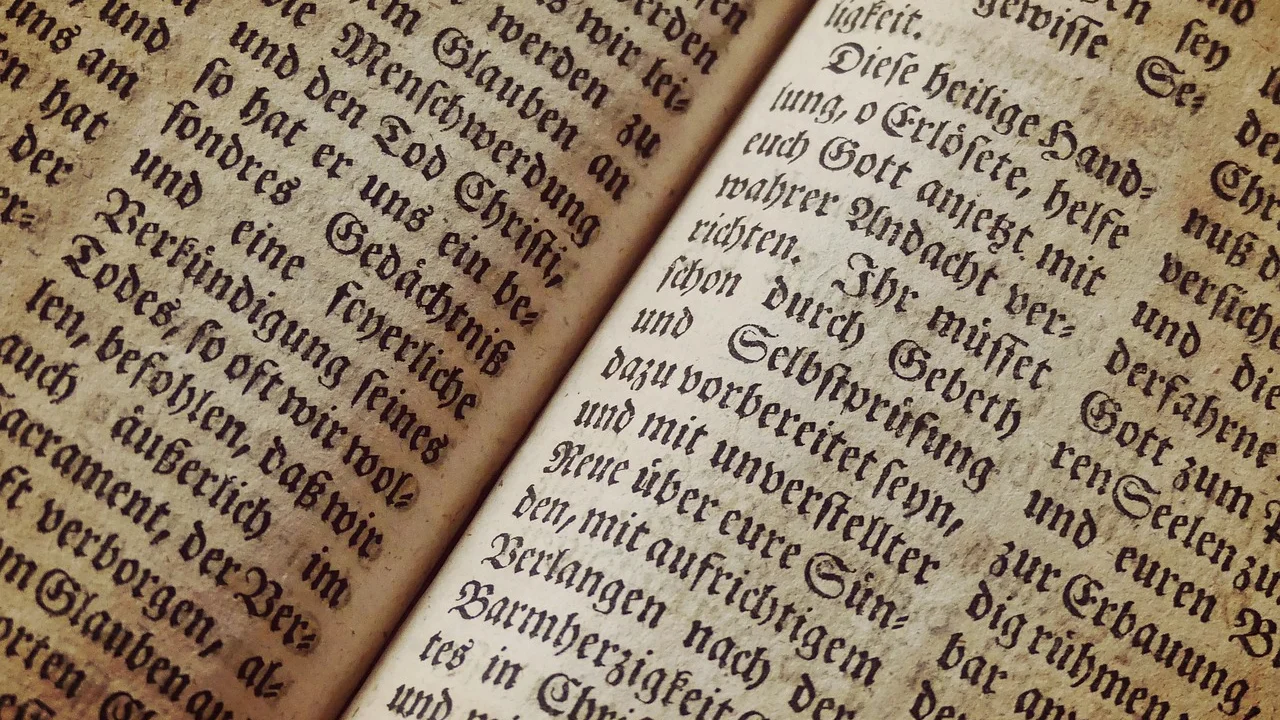 und
uns am
en hat
der
er⸗
werden
wir lei⸗
werden zu
em Glauben an
die Menschwerdung
und den Tod Christi,
so hat er uns ein be⸗
sondres Gedächtniß
und eine feyerliche
Verkündigung seines
Todes, so oft wir wol⸗
len, befohlen, daß wir
auch äußerlich im
Sacrament, der Ver⸗
ft verborgen, al⸗
m Glauben an
orten
gewisse Se⸗
ligkeit.
Diese heilige Hand⸗
lung, o Erlösete, helfe
euch Gott anjetzt mit
wahrer Andacht ver⸗
richten. Ihr müsset
schon durch Gebeth
und Selbstprüfung
dazu vorbereitet seyn,
und mit unverstellter
Reue über eure Sün⸗
den, mit aufrichtigem
Verlangen nach der
Barmherzigkeit
tes in Chri
und
sey
Chr
nuß d
versiche
und die
derfahrne
Gott zum
ren Seelen zu
und euren B
zur Erbauung,
dig rühmen
bar an